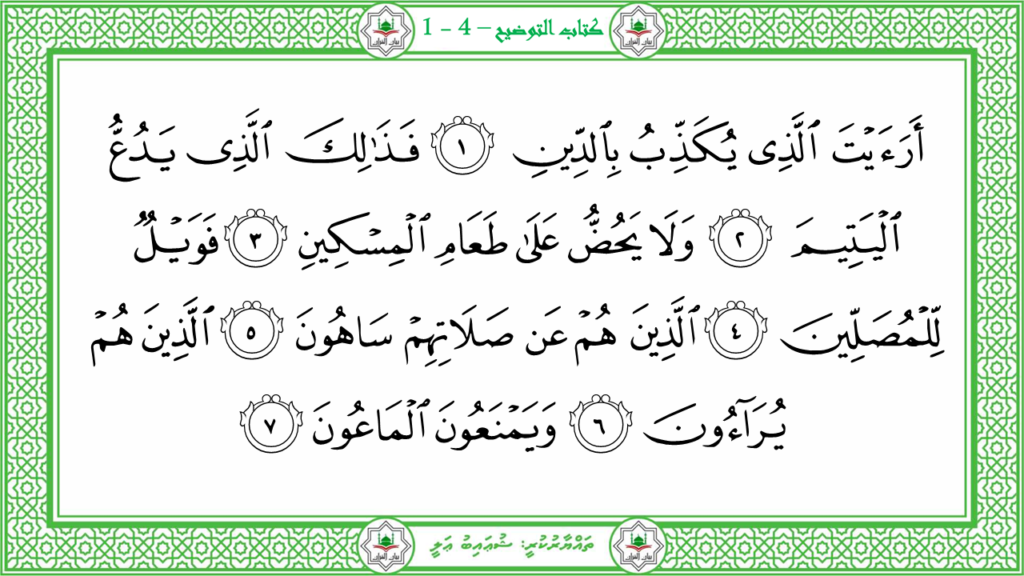 كتاب التوضيح – 4 - 1
أَرَءَيْتَ ٱلَّذِى يُكَذِّبُ بِٱلدِّينِ ١ فَذَٰلِكَ ٱلَّذِى يَدُعُّ
ٱلْيَتِيمَ ٢ وَلَا يَحُضُّ عَلَىٰ طَعَامِ ٱلْمِسْكِينِ ٣ فَوَيْلٌ
لِّلْمُصَلِّينَ ٤ ٱلَّذِينَ هُمْ عَن صَلَاتِهِمْ سَاهُونَ ٥ ٱلَّذِينَ هُمْ
يُرَآءُونَ ٦ وَيَمْنَعُونَ ٱلْمَاعُونَ ٧
ތައްޔާރުކުރީ: ޝުޢައިބު ޢަލީ